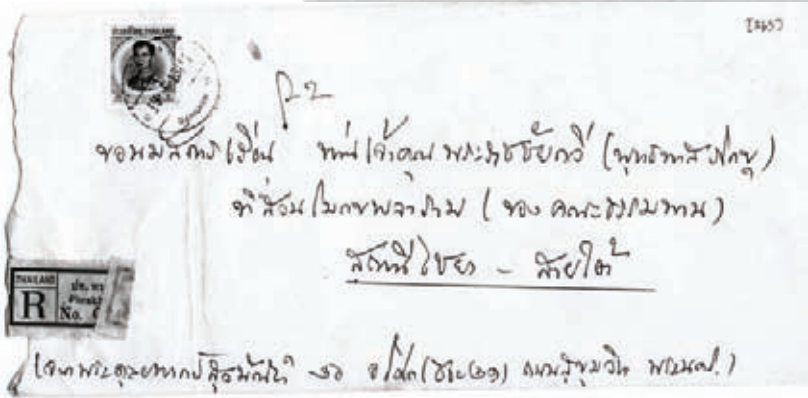 ขอนมัสการเรียน ท่านเจ้าคุณ พระราชชัยกวี (พุทธทาสภิกขุ)
ที่สวนโมกขพลาราม (ของ คณะธรรมทาน)
สถานีไชยา - สายใต้
THAILAND
R
No.
(จาก พระดุลยพากย์สุวมัณฑ์ ๓๐ อโศก (ซอย ๒๑) ถนนสุขุมวิท พระนคร.)